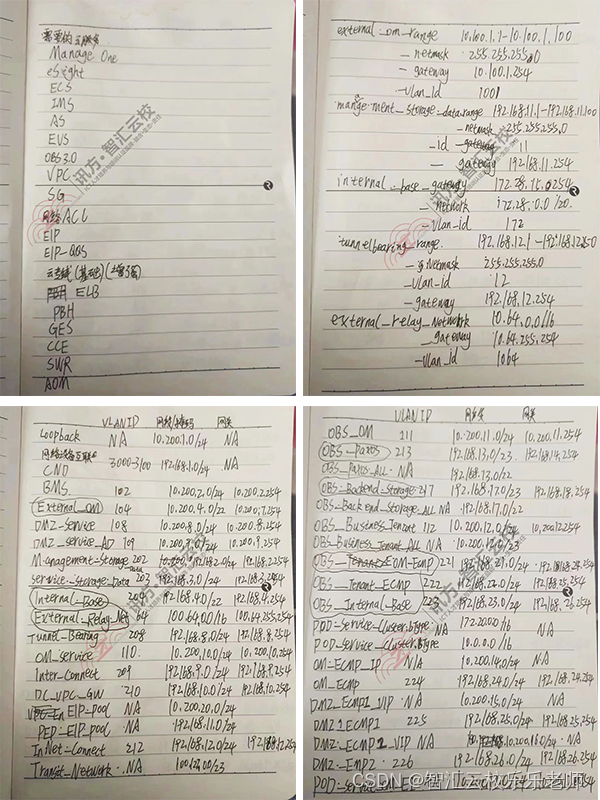 需要的云服务
Manage One
eSight
ECS
IMS
AS
EVS
OBS 3.0
VPC
SG
网络ACL
EIP
EIP-QOS
云专线(基础)(增强)
ELB
PBH
GES
CCE
SWR
AOM
external_om_range 10.100.1.1-10.100.1.100
-netmask 255.255.255.0
- gateway 10.100.1.254
-vlan_id 1001
management_storage_data_range 192.168.11.1-192.168.11.100
-netmask 255.255.255.0
-id 11
- gateway 192.168.11.254
internal_base_gateway 172.28.15.254
- network 172.28.0.0/20
-vlan_id 172
tunnelbearing_range 192.168.12.1-192.168.12.250
-netmask 255.255.255.0
-vlan_id 12
-gateway 192.168.12.254
external_relay_network 10.64.0.0/16
_gateway 10.64.255.254
-vlan_id 1064
VLANID 网关
Loopback NA 10.200.1.0/24 NA
网络设备互联 3000-3100 192.168.1.0/24 NA
CND
BMS 102 10.200.2.0/24 10.200.2.254
External_OM 104 10.200.4.0/22 10.200.7.254
DMZ_Service 108 10.200.8.0/24 10.200.8.254
DMZ_service_AD 109 10.200.9.0/24 10.200.9.254
Management-Storage 202 192.168.2.0/24 192.168.2.254
Service-Storage_Data 203 192.168.3.0/24 192.168.3.254
Internal_Base 204 192.168.4.0/22
External_Relay_Net 64 100.64.0.0/16 100.64.255.254
Tunnel_Bearing 208 192.168.8.0/24 192.168.8.254
OM_Service 110 10.200.10.0/24 10.200.10.254
Inter-Connect 209 192.168.9.0/24 192.168.9.254
DC_VPC_GW 210 192.168.10.0/24 192.168.10.254
EIP_Pool NA 10.200.20.0/24
EIP_pool NA 192.168.11.0/24 NA
InNet-Connect 212 192.168.12.0/24 192.168.12.254
Transit_Network NA
VLANID 网关
OBS_OM 111 10.200.11.0/24 10.200.11.254
OBS_Paxos 213 192.168.13.0/23 192.168.14.254
OBS_Paxos_ALL NA 192.168.13.0/22
OBS_Backend_Storage 217 192.168.17.0/23 192.168.18.254
OBS_Backend_Storage_ALL NA 192.168.17.0/22
OBS_Business_Tenant 112 10.200.12.0/24 10.200.12.254
OBS_Business_Tenant_ALL NA
OBS_OM-Ecmp 221
OBS_Tenant_ECMP 222
OBS_Internal_Base 223 192.168.23.0/24
POD_Service_Cluster NA 172.20.0.0/16 NA
POD_Service_Cluster NA 10.0.0.0/16
OM_ECMP_IP NA 10.200.14.0/24 NA
OM_ECMP 224 192.168.24.0/24 192.168.24.254
DMZ_ECMP1_VIP NA 10.200.15.0/24 NA
DMZ_ECMP1 225 192.168.25.0/24 192.168.25.254
DMZ_ECMP2_VIP NA 10.200.16.0/24 NA
DMZ-Emp2 226 192.168.26.0/24 192.168.26.254
讯方·智汇云校
CSDN @智汇云校乐乐老师